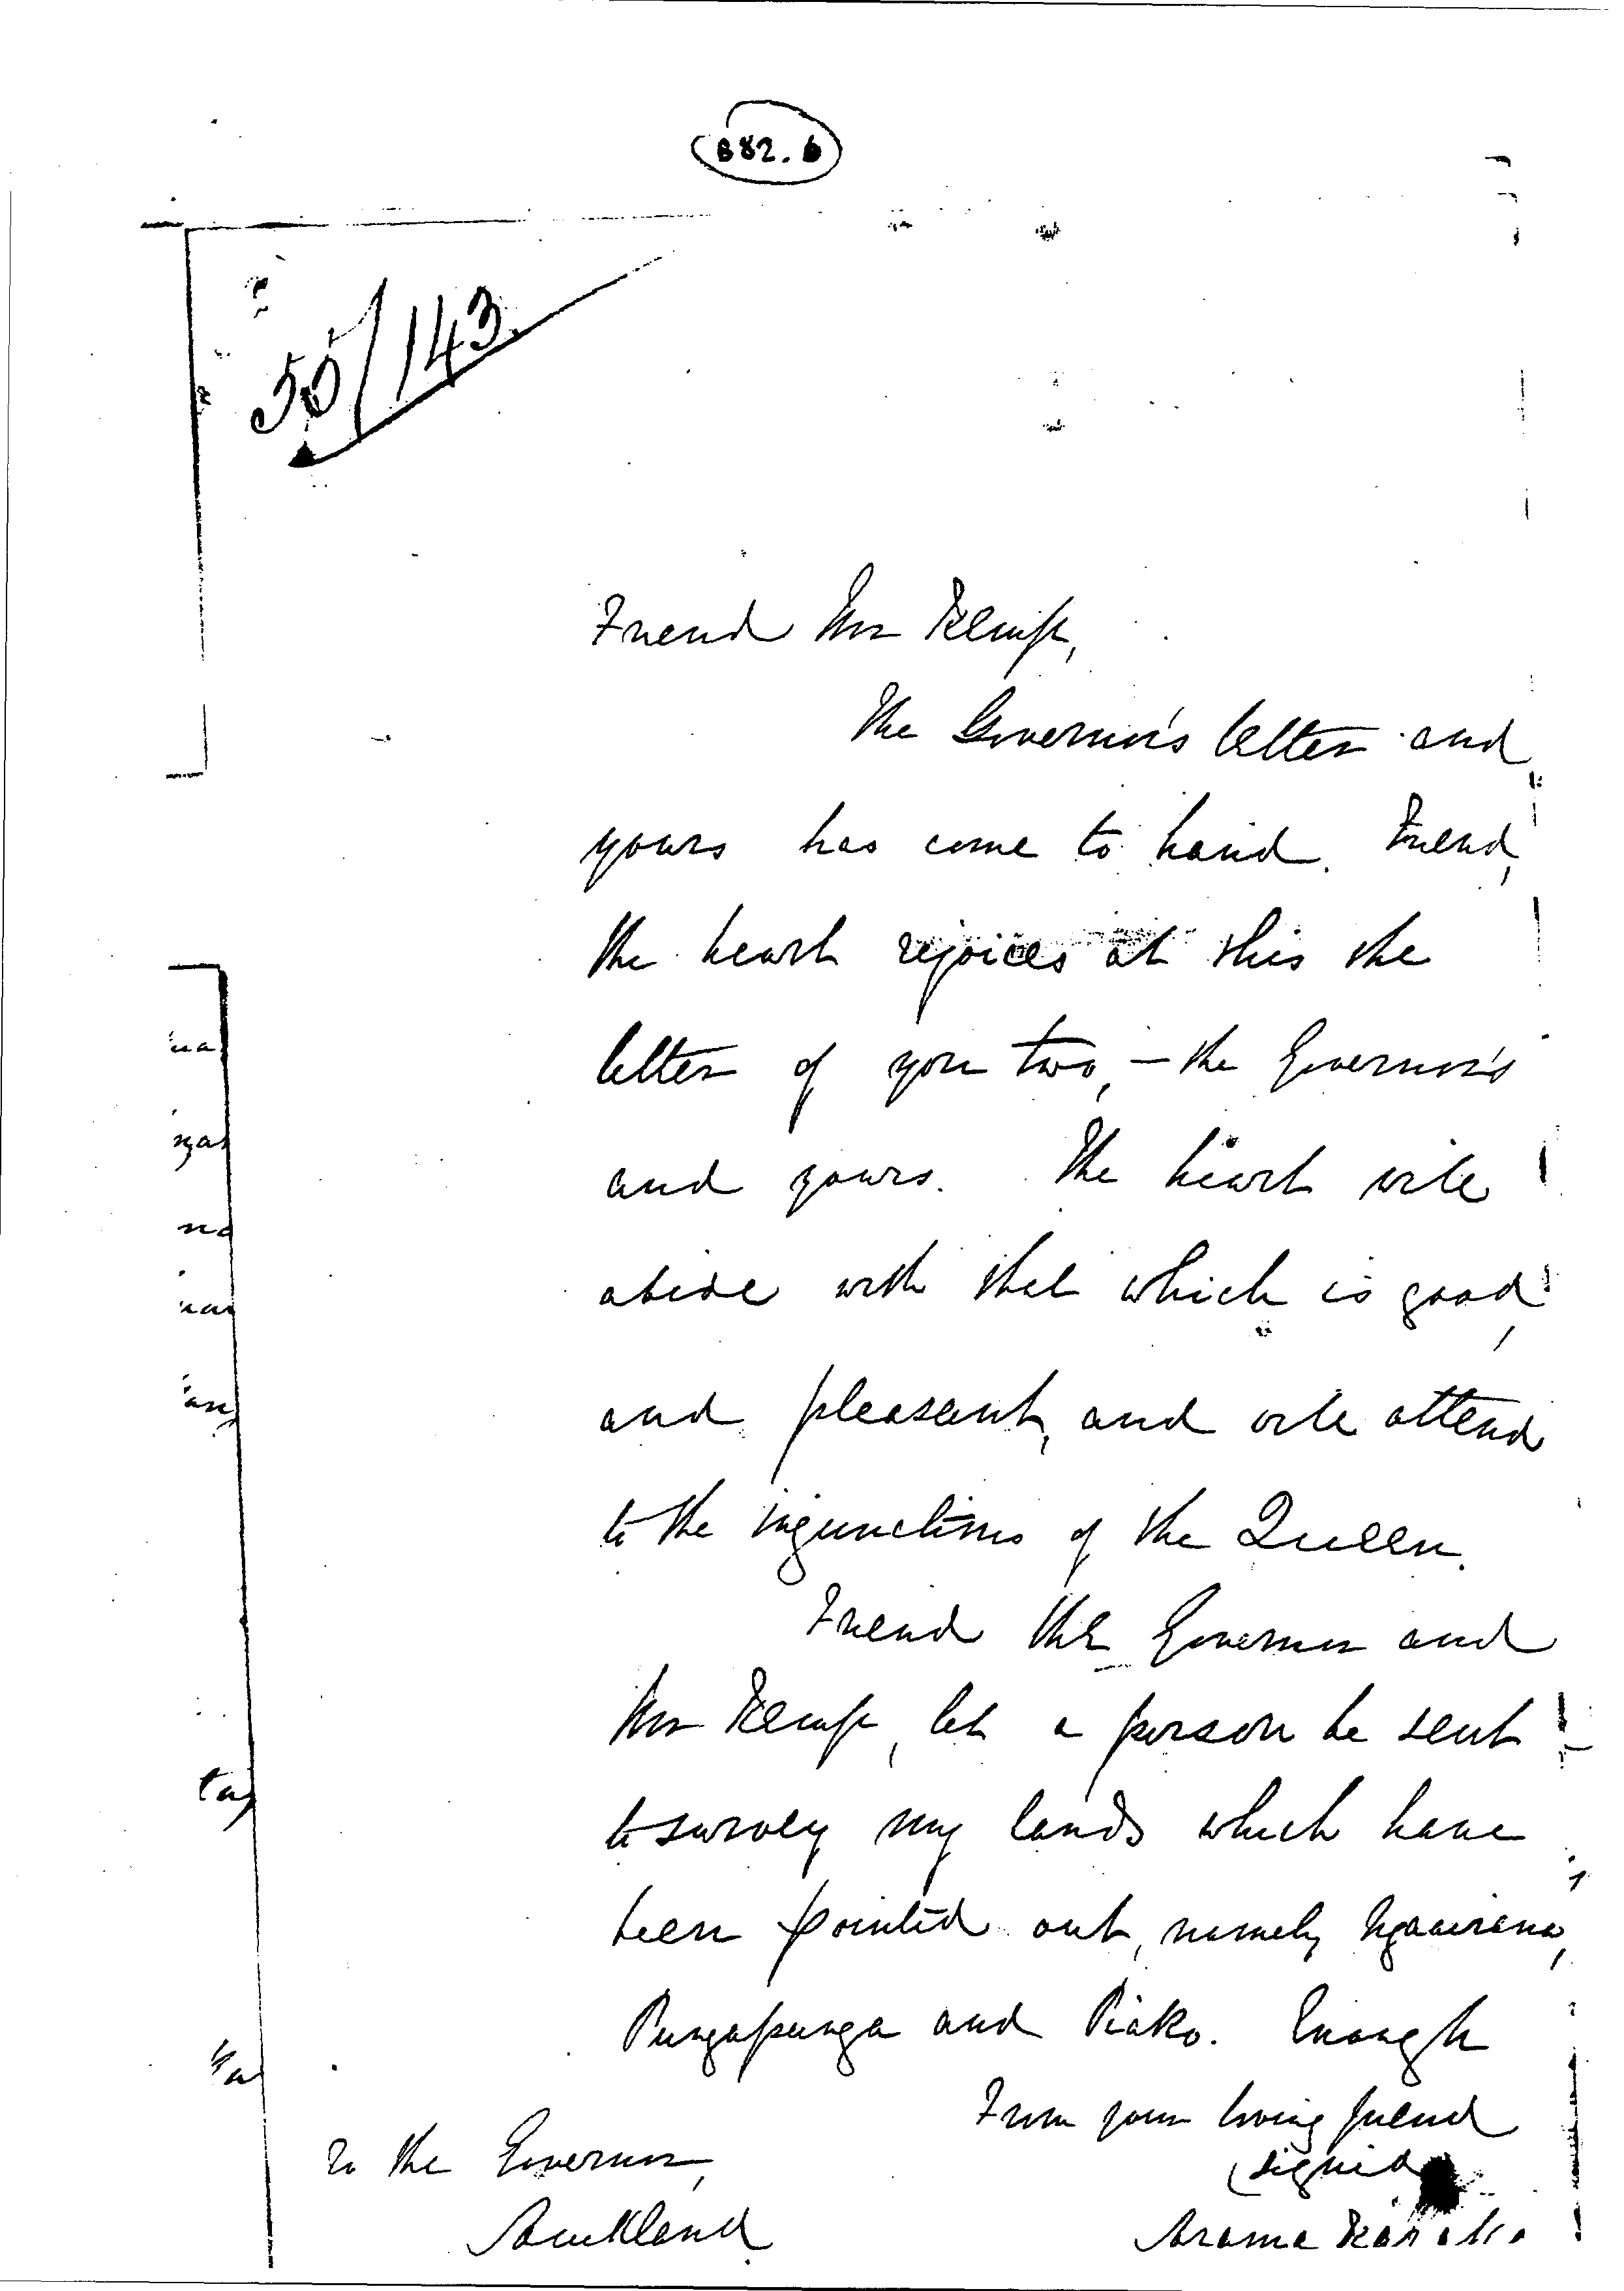 882.6
55/143
Friend Mr Kemp,
The Governor's letter and
yours has come to hand. Friend,
the heart rejoices at this the
letter of you two, - the Governor's
and yours. The heart will
abide with that which is good,
and pleasant, and will attend
to the injunctions of the Queen.
Friend the Governor and
Mr Kemp, let a person be sent
to survey my lands which have
been pointed out, namely
Pungapunga and Piako. Enough
From your loving friend
(signed
Arama Karaka
To the Governor,
Auckland